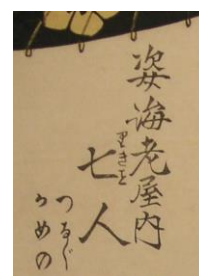 姿海老屋内
七人
つるぐ
うめの